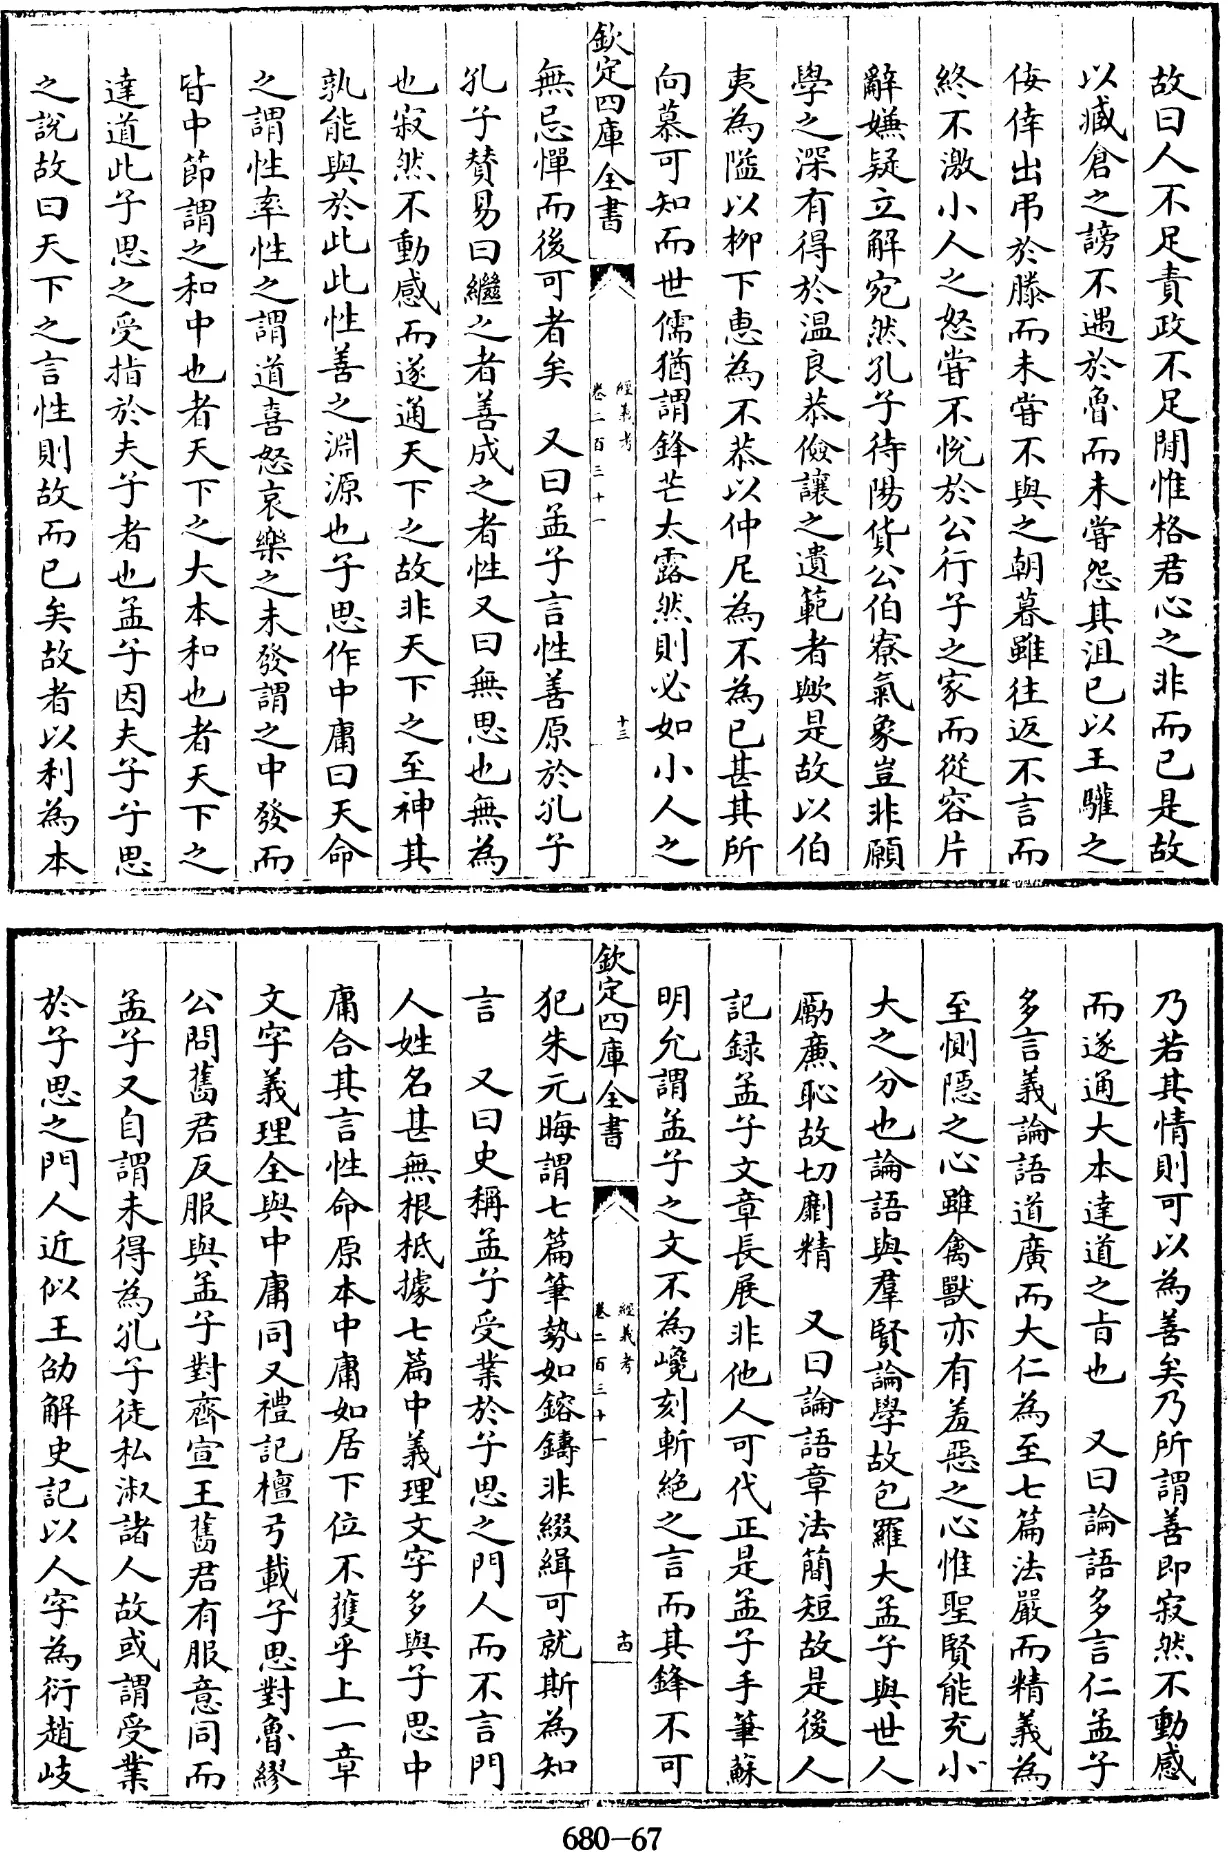 故曰人不足責政不足閒惟格君心之非而已是故
以臧倉之謗不遇於魯而未嘗怨其沮已以王驩之
佞倖出弔於滕而未嘗不與之朝暮雖往返不言而
終不激小人之怒嘗不悅於公行子之家而從容片
辭嫌疑立解宛然孔子待陽貨公伯寮氣象豈非願
學之深有得於温良恭儉讓之遺範者歟是故以伯
夷為隘以柳下惠為不恭以仲尼為不為已甚其所
向慕可知而世儒猶謂鋒芒太露然則必如小人之
欽定四庫全書
經義考
卷二百三十一
十三
無忌憚而後可者矣　又曰孟子言性善原於孔子
孔子賛易曰繼之者善成之者性又曰無思也無為
也寂然不動感而遂通天下之故非天下之至神其
孰能與於此此性善之淵源也子思作中庸曰天命
之謂性率性之謂道喜怒哀樂之未發謂之中發而
皆中節謂之和中也者天下之大本和也者天下之
達道此子思之受指於夫子者也孟子因夫子子思
之說故曰天下之言性則故而已矣故者以利為本
乃若其情則可以為善矣乃所謂善即寂然不動感
而遂通大本達道之旨也　又曰論語多言仁孟子
多言義論語道廣而大仁為至七篇法嚴而精義為
至惻隱之心雖禽獸亦有羞惡之心惟聖賢能充小
大之分也論語與羣賢論學故包羅大孟子與世人
勵廉恥故切劘精　又曰論語章法簡短故是後人
記録孟子文章長展非他人可代正是孟子手筆蘇
明允謂孟子之文不為巉刻斬絶之言而其鋒不可
欽定四庫全書
經義考
卷二百三十一
十四
犯朱元晦謂七篇筆勢如鎔鑄非綴緝可就斯為知
言　又曰史稱孟子受業於子思之門人而不言門
人姓名甚無根柢據七篇中義理文字多與子思中
庸合其言性命原本中庸如居下位不獲乎上一章
文字義理全與中庸同又禮記檀弓載子思對魯繆
公問舊君反服與孟子對齊宣王舊君有服意同而
孟子又自謂未得為孔子徒私淑諸人故或謂受業
於子思之門人近似王劭解史記以人字為衍趙岐
680-67